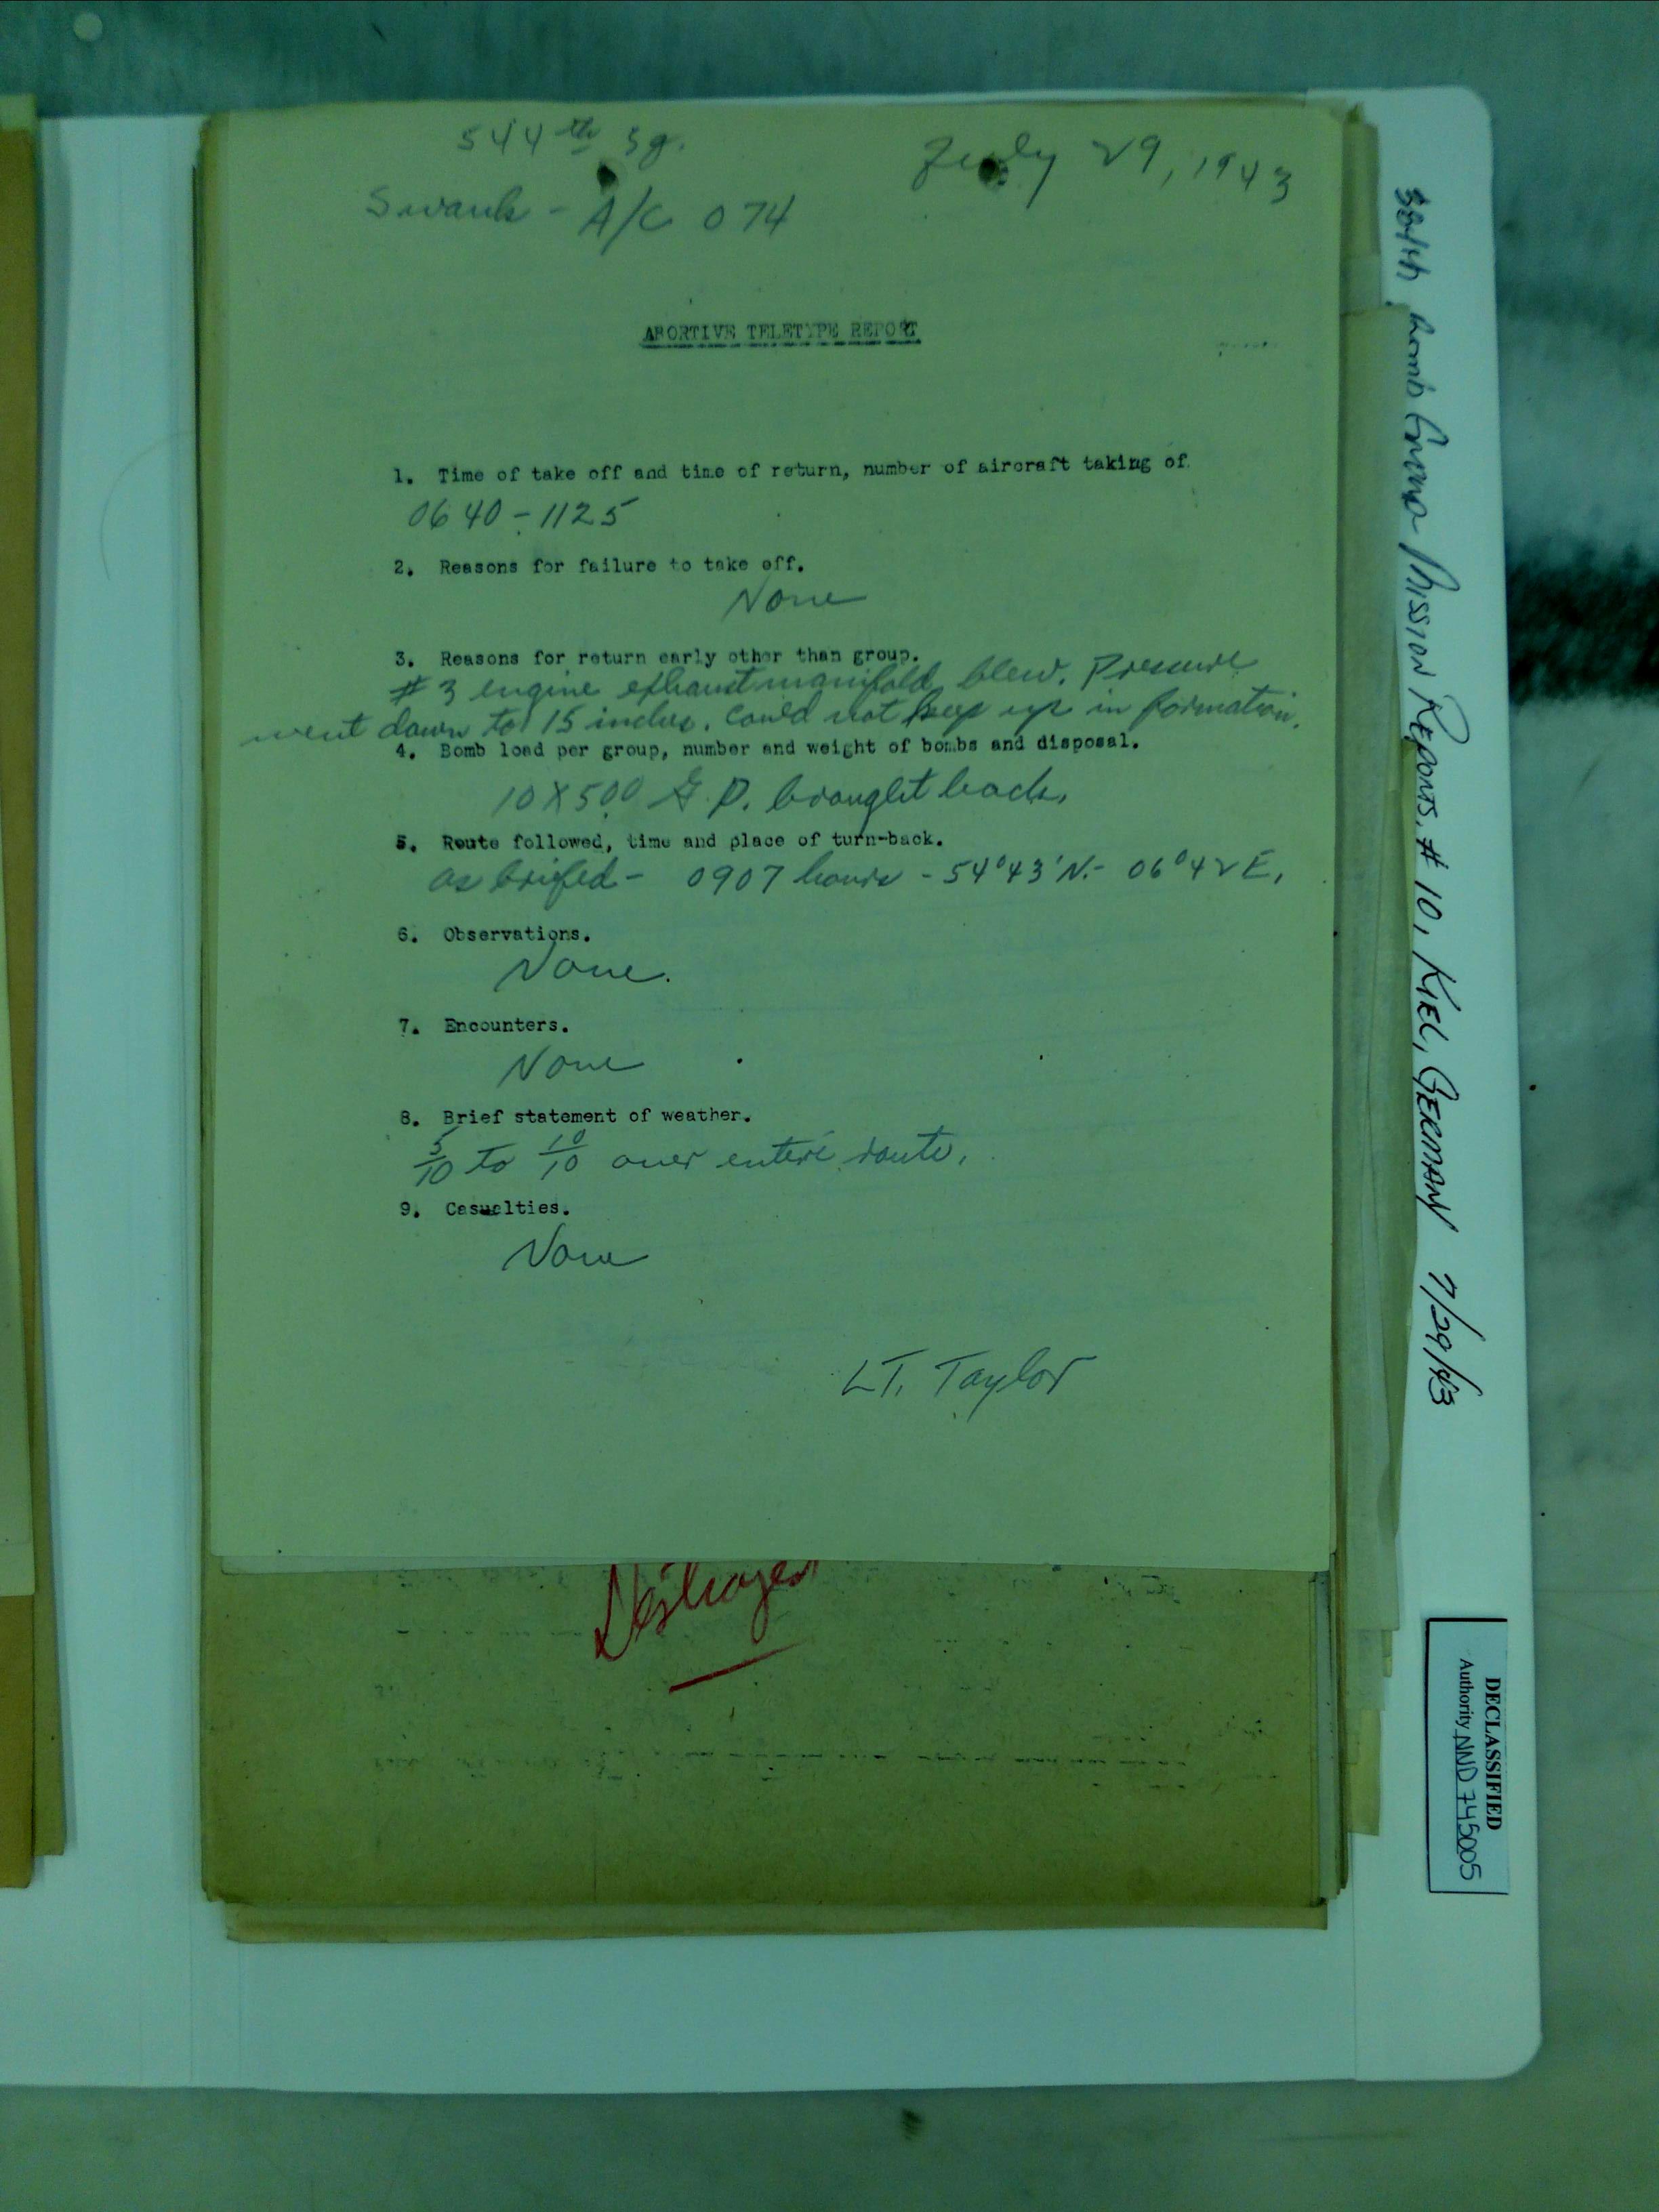 544th Sq.
July 29, 1943
Swank - A/C 074
ABORTIVE TELETYPE REPORT
1. Time of take off and time of return, number of aircraft taking of
0640 - 1125
2. Reasons for failure to take off.
None
3. Reasons for return early other than group.
# 3 engine exhaust manifold blew. Pressure
went down to 15 inches. Could not keep up in formation.
4. Bomb load per group, number and weight of bombs and disposal.
10 X 500 G.P. brought back.
5. Route followed, time and place of turn-back.
as brifed - 0907 hours - 54°43'N. - 06°42 E.
6. Observations.
None.
7. Encounters.
None
8. Brief statement of weather.
5/10 to 10/10 over entire route.
9. Casualties.
None
LT. Taylor
Destroyed
384th Bomb Group Mission Reports, # 10, KIEL, GERMANY 7/29/43
DECLASSIFIED
Authority NND 745005